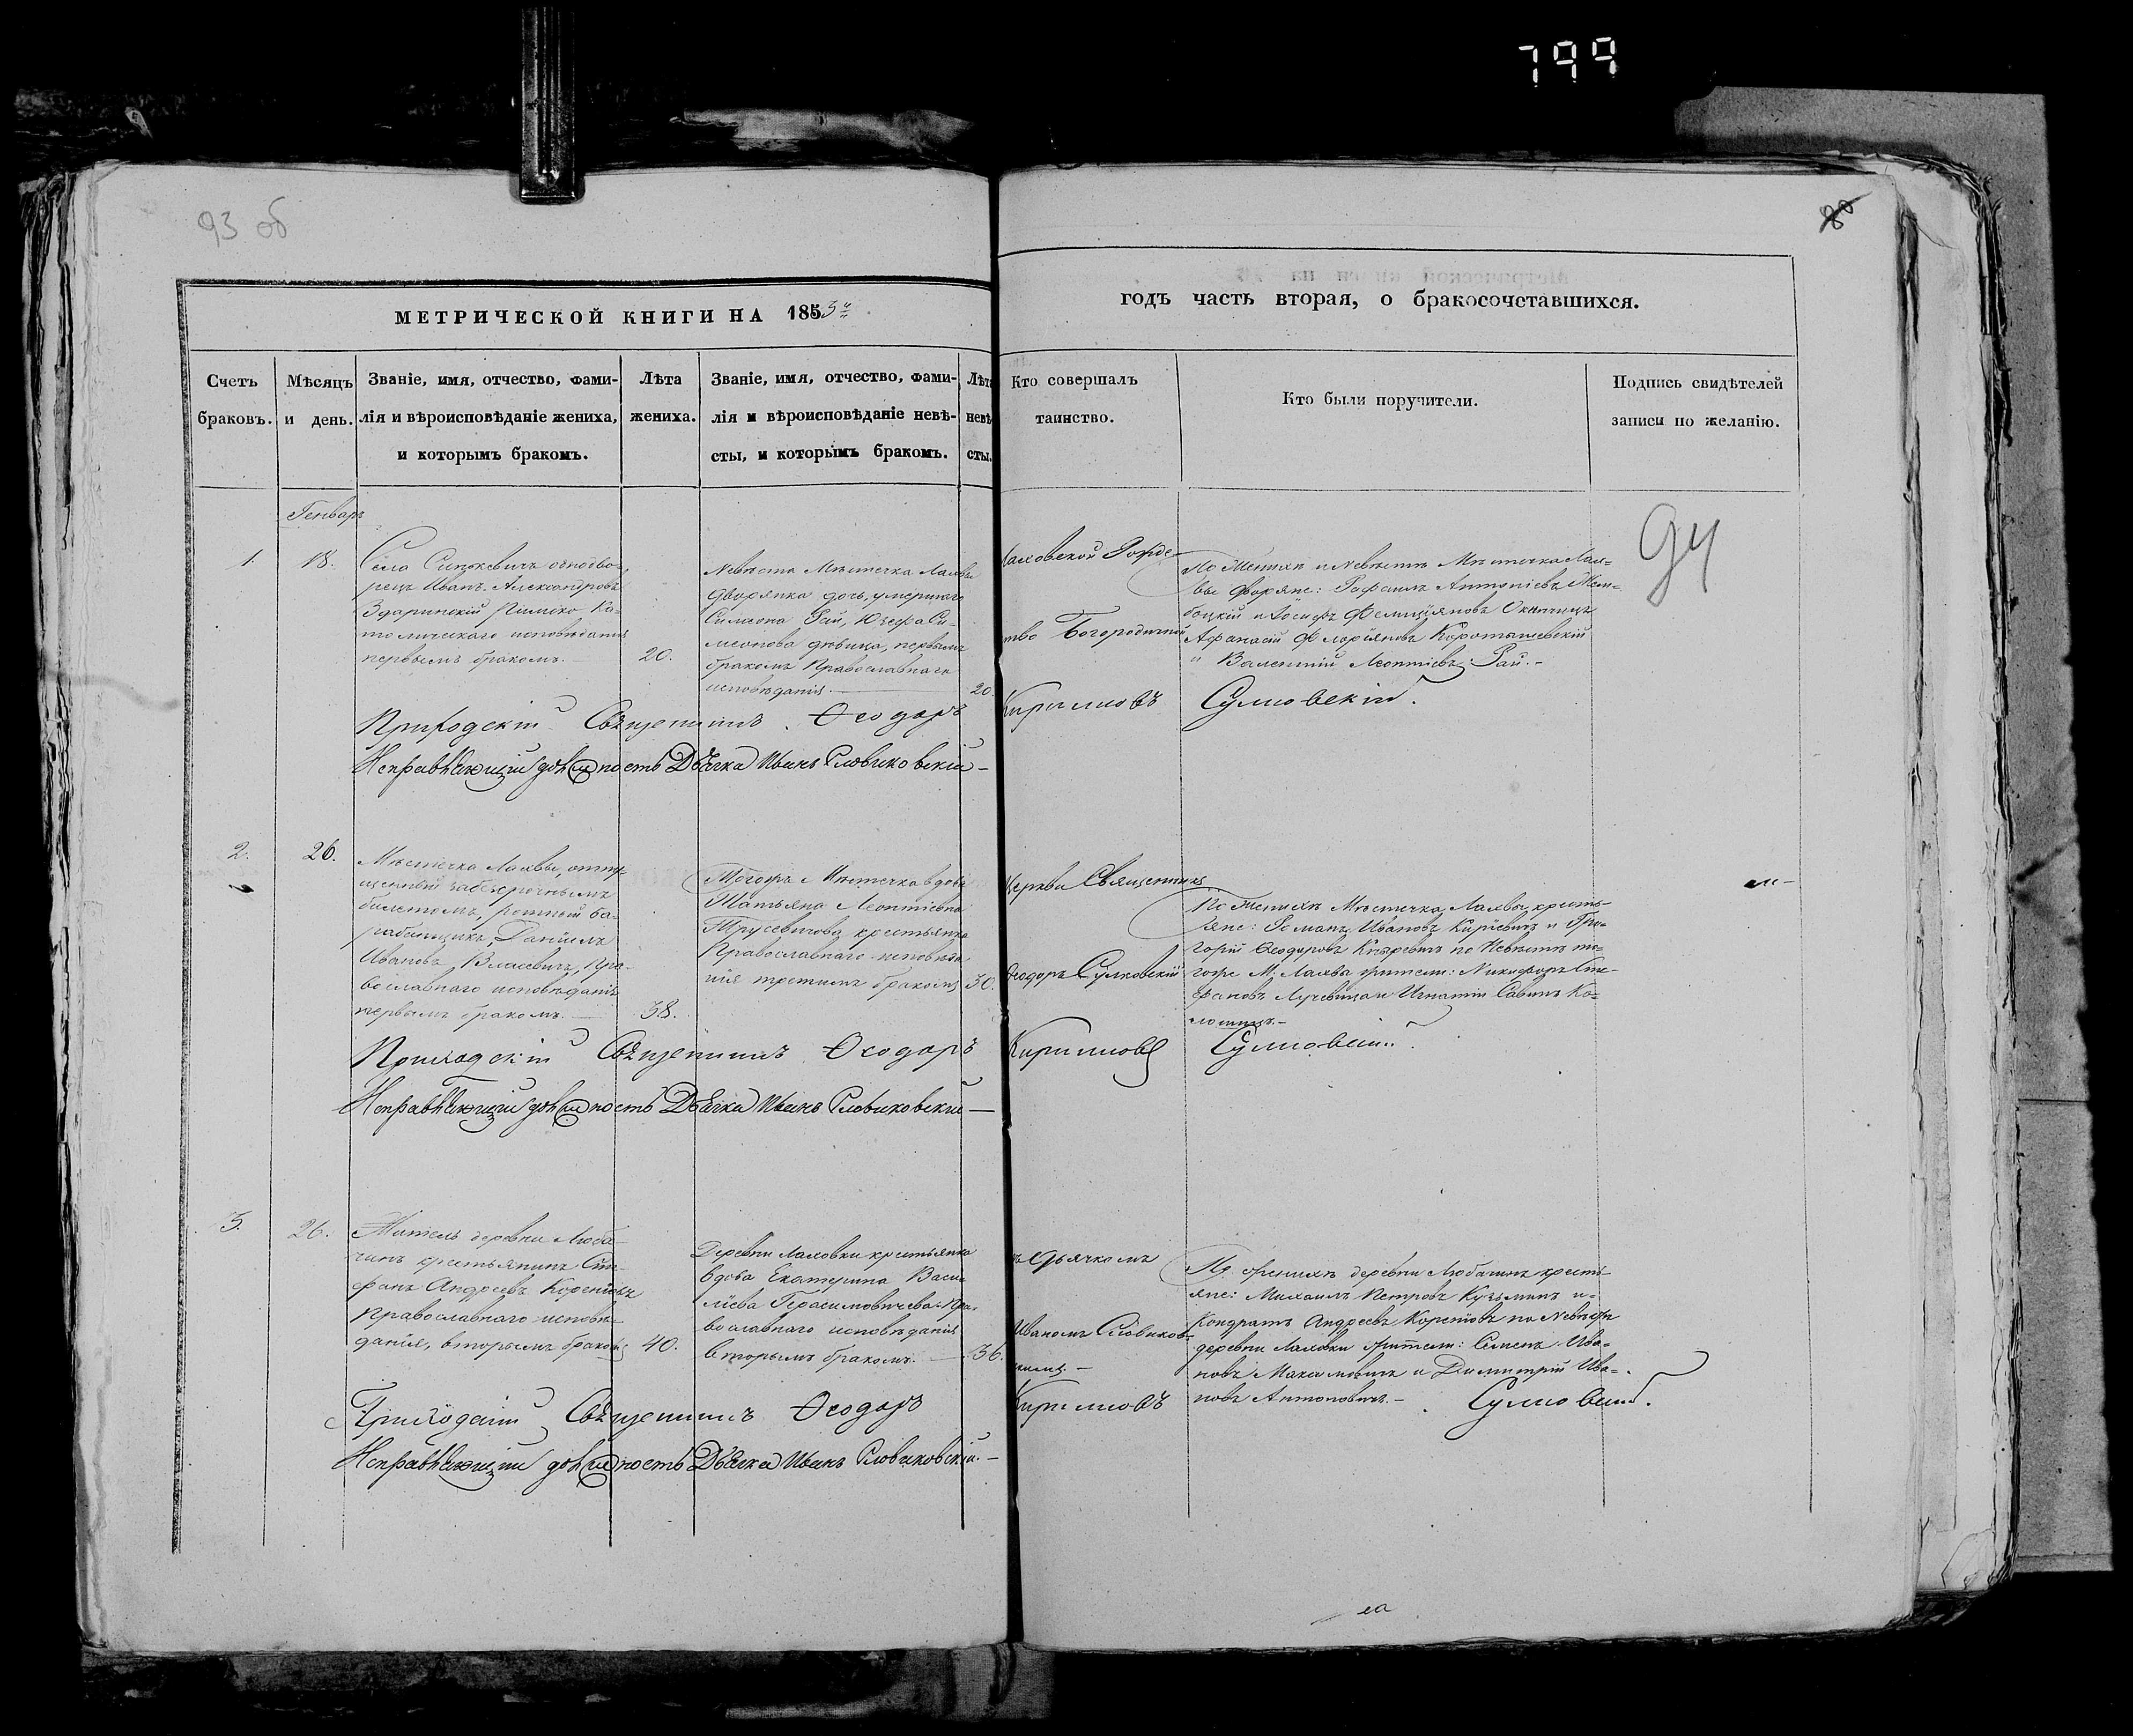 799
93 об
80
МЕТРИЧЕСКОЙ КНИГИ НА 1853й
годъ часть вторая, о бракосочетавшихся.
Счетъ браковъ.
Мѣсяцъ и день.
Званіе, имя, отчество, фами-
лія и вѣроисповѣданіе жениха,
и которымъ бракомъ.
Лѣта жениха.
Званіе, имя, отчество, фами-
лія и вѣроисповѣданіе невѣ-
сты, и которымъ бракомъ.
Лѣта невѣ-
сты.
Кто совершалъ
таинство.
Кто были поручители.
Подпись свидѣтелей
записи по желанію.
94
Генварь
1.
18.
Села Синкевичъ однодво-
рецъ Иванъ Александровъ
Здаринскій Римско Ка-
толическаго исповѣданія
первымъ бракомъ.
20.
Невѣста Мѣстечка Лахвы
дворянка дочь умершаго
Симеона Рай, Юзефа Си-
меонова дѣвица, первымъ
бракомъ Православнаго
исповѣданія.
20.
Лаховской Рожде-
ство Богородичной
По Женихѣ и Невѣстѣ Мѣстечка Лах-
вы дворяне: Рафаилъ Антоніевъ
и Іосифъ Фелиціяновъ
Афанасій Флоріяновъ Коротышевскій
и Валентій Леонтіевъ Рай.
Приходскій Священникъ Ѳеодоръ Кирилловъ Сулковскій.
Исправляющій должность Дьячка Иванъ Словиковскій
2.
26.
Мѣстечка Лахвы, отпу-
щенный за безсрочнымъ
билетомъ, ротный ба-
рабанщикъ, Даніилъ
Ивановъ Власевичъ, Пра-
вославнаго исповѣданія
первымъ бракомъ.
38.
Тогожъ Мѣстечка вдова
Татьяна Леонтіевна
Трусевичова крестьянка
Православнаго исповѣда
нія третимъ бракомъ
30.
Церкви Священникъ
Ѳеодоръ Сулковскій
По Женихѣ Мѣстечка Лахвы кресть-
яне: Романъ Ивановъ Киріевичъ и Гри-
горій Ѳеодоровъ по Невѣстѣ то-
гоже М. Лахвы жители: Никифоръ Сте-
фановъ Лучевица и Игнатій Савинъ Ко-
Приходскій Священникъ Ѳеодоръ Кирилловъ Сулковскій.
Исправляющій должность Дьячка Иванъ Словиковскій
3.
26.
Житель деревни Люба-
чинъ крестьянинъ Сте-
фанъ Андреевъ
Православнаго исповѣ-
данія, вторымъ бракомъ
40.
Деревни Лаховки крестьянка
вдова Екатерина Васи-
лiева Герасимовичева Пра-
вославнаго исповѣданія
вторымъ бракомъ.
36.
съ Дьячкомъ
Иваномъ Словиков-
скимъ
По женихѣ деревни Любачинъ кресть-
яне: Михаилъ Петровъ Кузьминъ и
Кондратъ Андреевъ по Невѣстѣ
деревни Лаховки жители: Семенъ Ива-
новъ и Димитрій Ива-
новъ Антоновичъ.
Приходскій Священникъ Ѳеодоръ Кирилловъ Сулковскій.
Исправляющій должность Дьячка Иванъ Словиковскій.